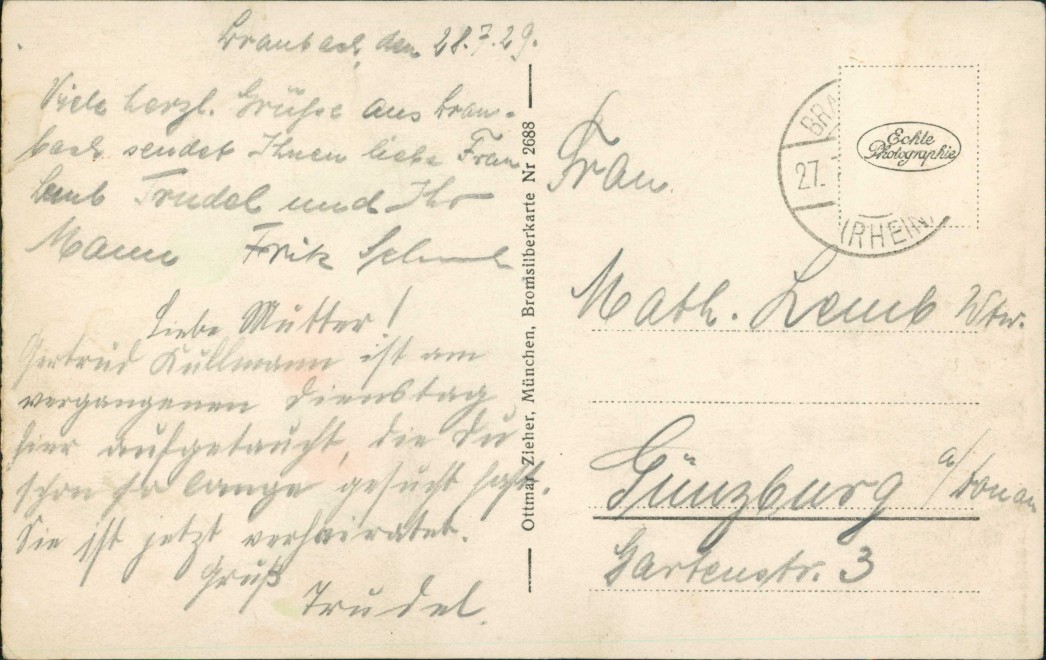 Braubach, den 28.7.29.
Viele herzl. Grüße aus Brau-
bach sendet Ihnen liebe Frau
Lemb Trudel und Ihr
Mann Fritz
Liebe Mutter!
Gertrud Kullmann ist am
vergangenen Dienstag
hier aufgetaucht, die Du
schon so lange gesucht hast.
Sie ist jetzt verheiratet.
Gruß
Trudel.
Ottmar Zieher, München, Bromsilberkarte Nr 2688
BRA
27.
(RHEIN)
Echte
Photographie
Frau
Math. Lemb Wtw.
Günzburg a/Donau
Gartenstr. 3